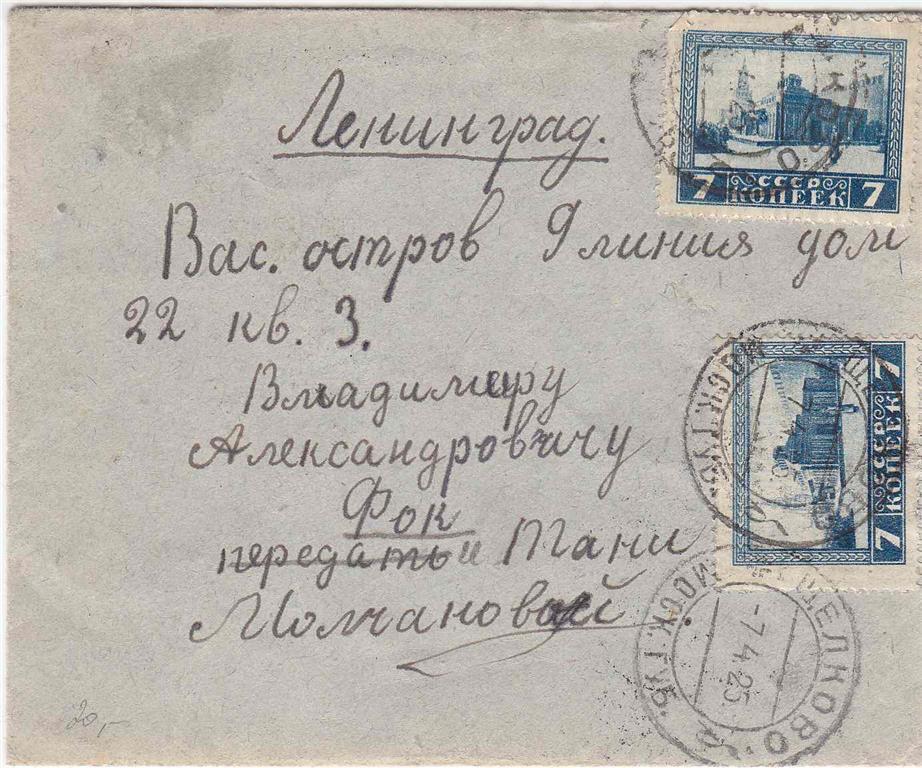 Ленинград.
Вас. остров 9 линия дом
22 кв. 3.
Владимиру
Александровичу
Фок
передать и Тани
Молчановой.
20,-
СССР
7 КОПЕЕК 7
СССР
7 КОПЕЕК 7
МОСК. ГУБ.
ЩЕЛКОВО МОСК. ГУБ.
-7.4.25